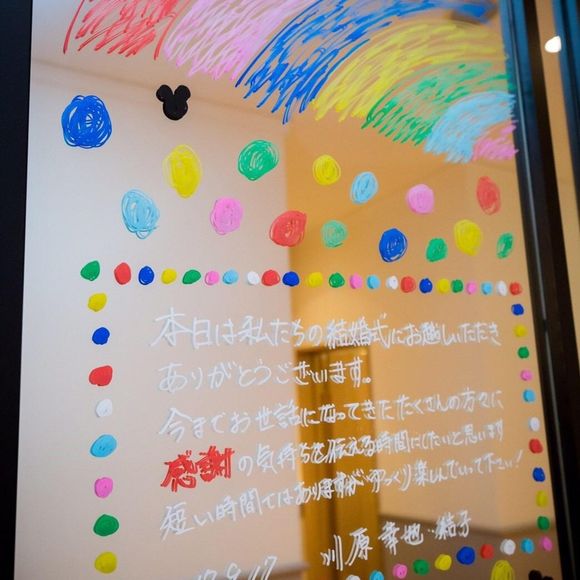 本日は私たちの結婚式にお越しいただき
ありがとうございます。
今までお世話になってきたたくさんの方々に
感謝の気持ちを伝える時間にしたいと思います
短い時間ではありますがゆっくり楽しんでいって下さい!
川原 幸也・結子
9.17